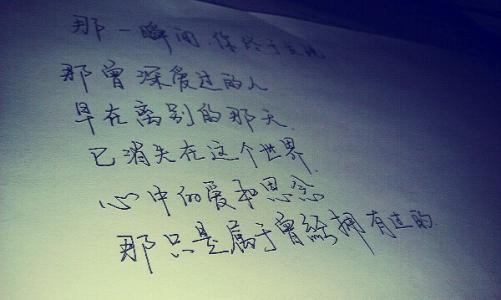 那一瞬间,你终于发现
那曾深爱过的人
早在离别的那天.
已消失在这个世界.
心中的爱和思念
那只是属于曾经拥有过的